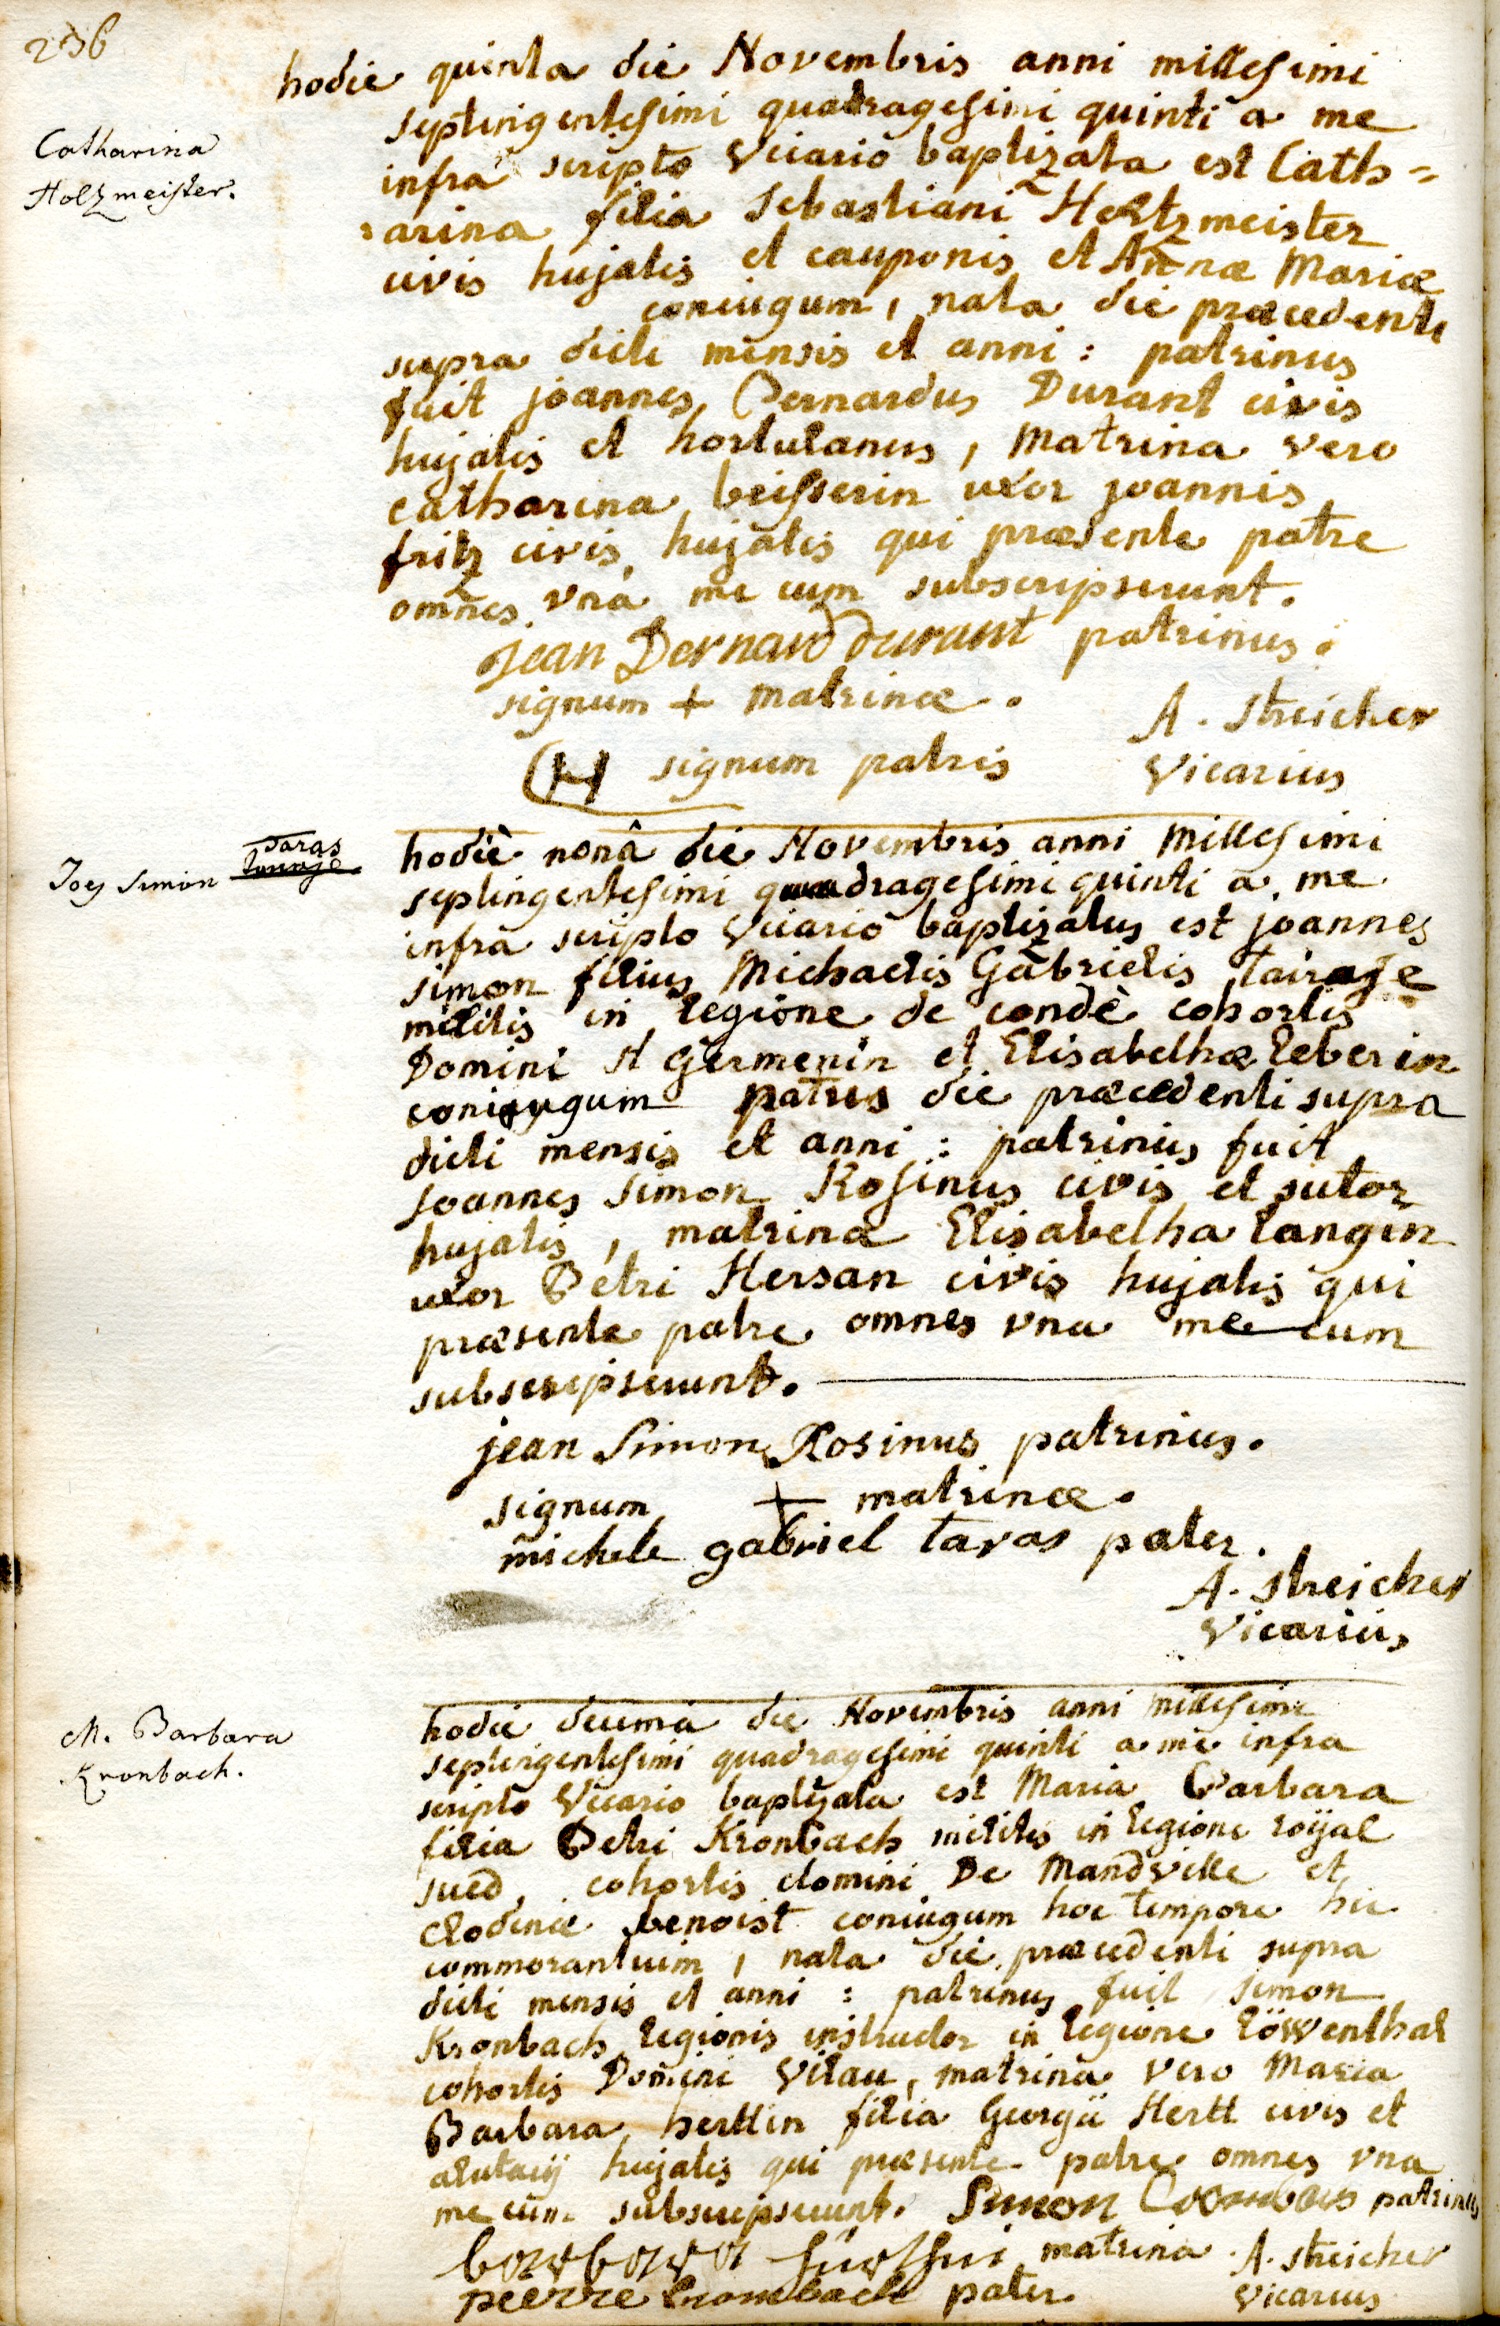 236
hodie quinta die Novembris anni millesimi
septingentesimi quadragesimi quinti a me
Catharina
Holtzmeister.
infra scripto Vicario baptizata est Cath=
=arina filia Sebastiani Holtzmeister
civis hujatis et cauponis et Annæ Mariæ
coniugum, nata die præcedenti
supra dicti mensis et anni: patrinus
fuit joannes Bernardus Durant civis
hujatis et hortulanus, Matrina vero
catharina beisserin uxor joannis
fritz civis hujatis qui præsente patre
omnes vná me cum subscripserunt.
Jean Bernard durant patrinus.
signum + matrinæ.
A. Streicher
H signum patris
Vicarius
Joes Simon Taras
hodiè nonâ die Novembris anni Millesimi
septingentesimi quadragesimi quinti a me
infra scripto Vicario baptizatus est joannes
simon filius Michaelis Gabrielis tairage
militis in legione de condè cohortis
Domini St Germenin et Elisabethæ leberin
coniugum natus die præcedenti supra
dicti mensis et anni: patrinus fuit
Joannes Simon Rosinus civis et sutor
hujatis, matrina Elisabetha langin
uxor Petri Hersan civis hujatis qui
præsente patre omnes vna me cum
subscripserunt.
jean Simon Rosinus patrinus.
signum + matrinæ.
michele gabriel taras pater.
A. Streicher
Vicarius
M. Barbara
Kronbach.
hodie decima die Novembris anni millesimi
septingentesimi quadragesimi quinti a me infra
scripto Vicario baptizata est Maria Barbara
filia Petri Kronbach militis in legione roijal
sued, cohortis domini De Mandville et
Clodinæ benoist coniugum hoc tempore hic
commorantium, nata die præcedenti supra
dicti mensis et anni: patrinus fuit simon
Kronbach legionis instructor in legione löwenthal
cohortis Domini Vilau, matrina vero Maria
Barbara herttin filia Georgii Hertt civis et
alutarij hujatis qui præsente patre omnes vna
me cum subscripserunt. Simon patrinus
barbara matrina. A. Streicher
peerre Cronebach pater Vicarius